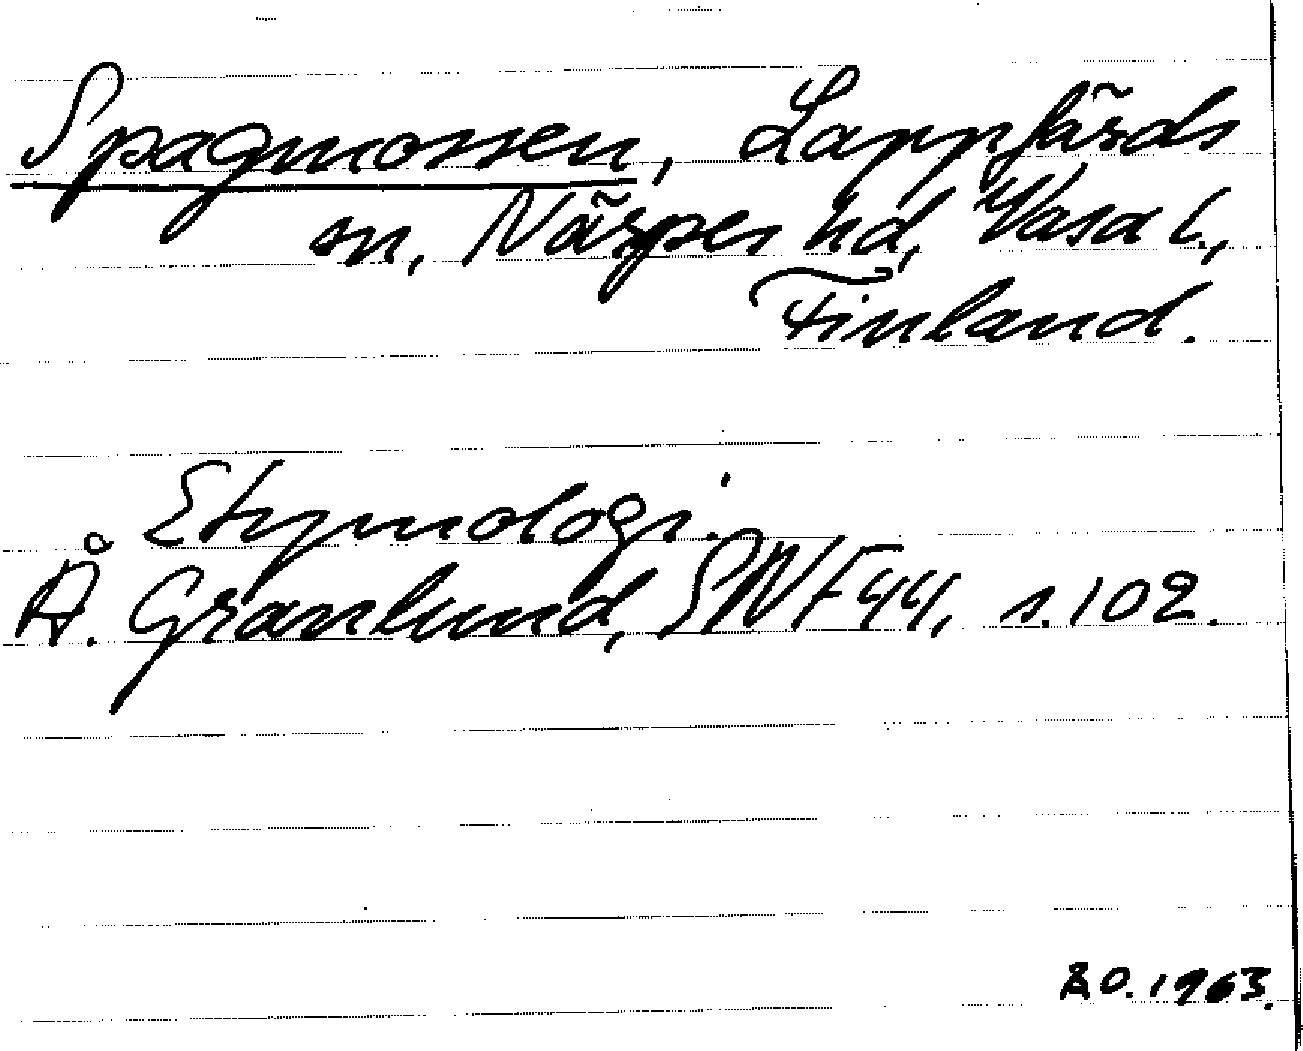 Spagmossen, Lappfjärds
sn, Närpes hd, Vasa l.,
Finland.
Etymologi.
Å. Granlund, SNF 44, s. 102.
ÅO. 1963.